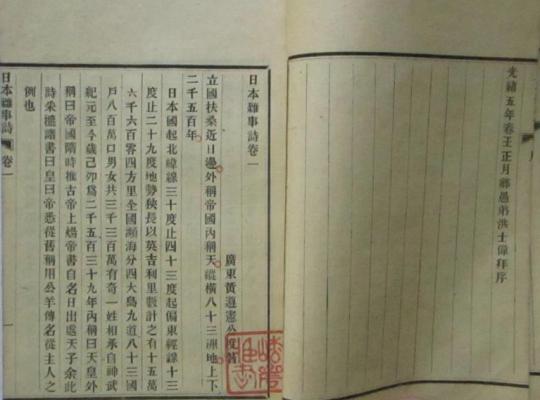 光緒五年春王正月鄉愚弟洪士偉拜序
日本雜事詩卷一
廣東黃遵憲公度著
立國扶桑近日邊外稱帝國內稱天縱橫八十三州地上下
二千五百年
日本國起北緯線三十度止四十三度起偏東經線十三
度止二十九度地勢狹長以英吉利里數計之有十五萬
六千六百零四方里全國瀕海分四大島九道八十三國
戶八百萬口男女共三千三百萬有奇一姓相承自神武
紀元至今歲己卯為二千五百三十九年內稱曰天皇外
稱曰帝國隋時推古帝上煬帝書自名日出處天子余此
詩采摭諸書曰皇曰帝悉從舊稱用公羊傳名從主人之
例也
日本雜事詩 卷一